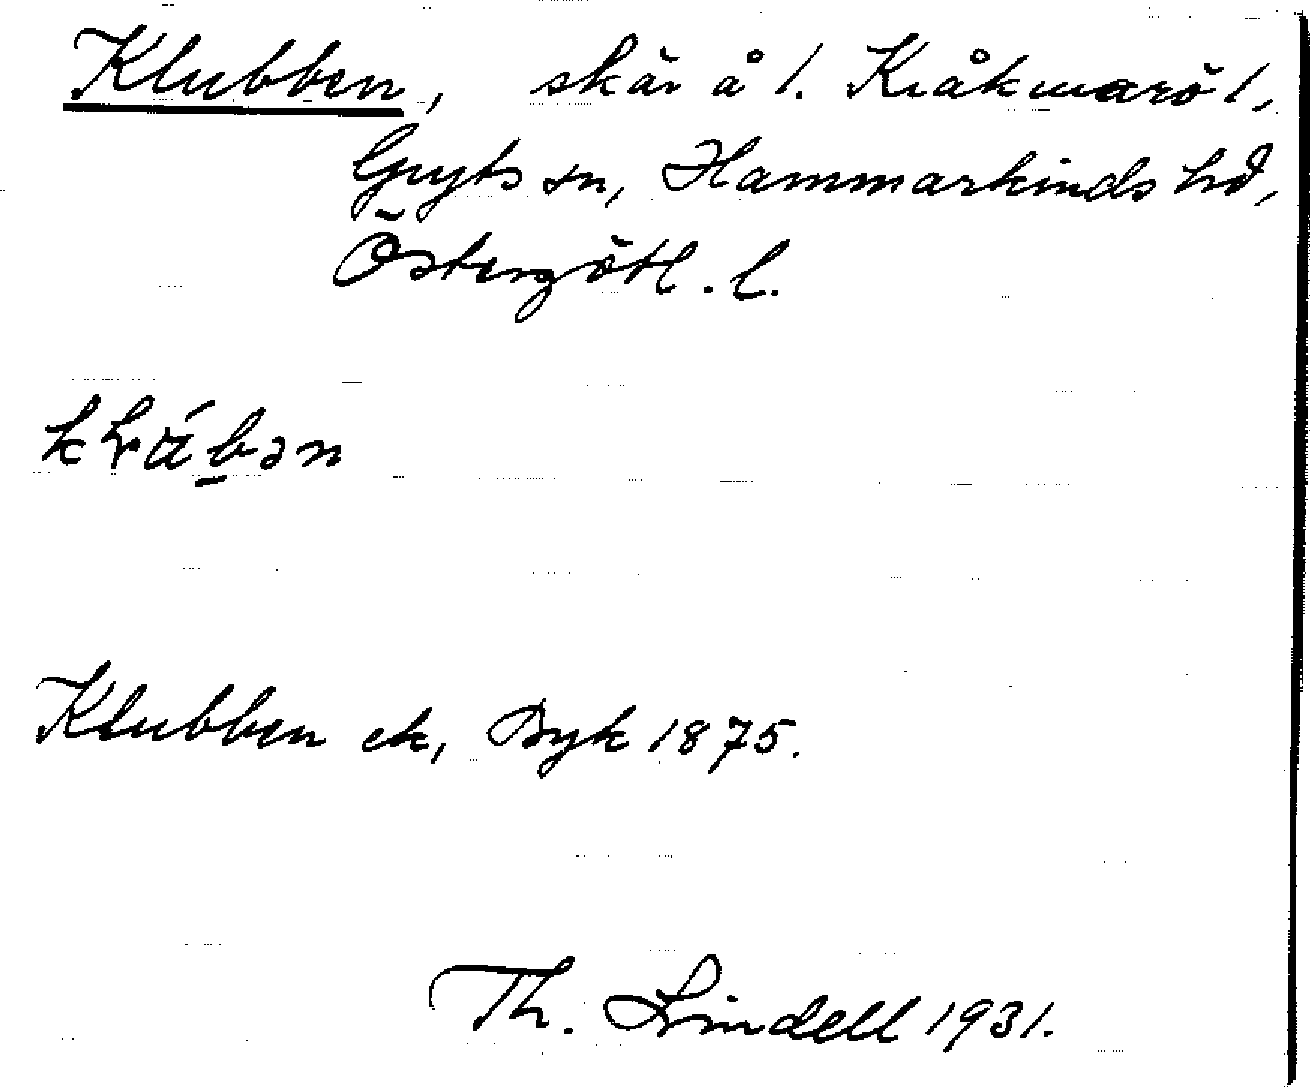 Klubben, skär å 1. Kråkmarö 1,
Gryts sn, Hammarkinds hd,
Östergötl. l.
Klubben ek, Byk 1875.
Th. Lindell 1931.